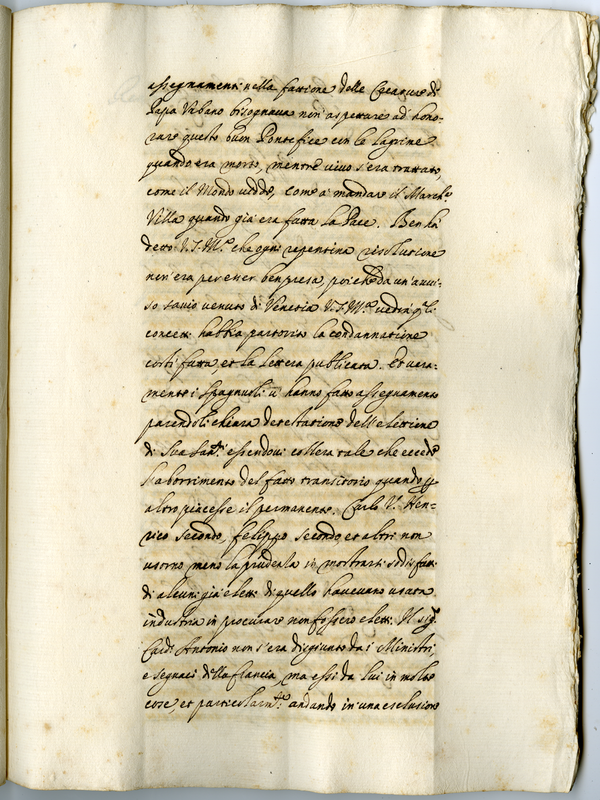 assegnamenti nella fattione delle Creature di
Papa Vrbano bisognaua non aspettare ad hono-
rare questo buon Pontefice con le lagrime
quando era morto, mentre viuo s'era trattato,
come il Mondo uedde, come à mandare il March.e
Villa quando già era fatta la Pace. Ben hà
detto V.S.Ill.ma che ogni repentina risolutione
non era per esser ben presa, poiche da un'aui-
so sauio uenuto di Venetia V.S.Ill.ma uedrà q.li
concetti habbia partorito la condannatione
costì fatta, et la lettera publicata. Et uera-
mente i Spagnuoli ui hanno fatto assegnamento
parendoli chiara detestatione dell'elettione
di Sua San.tà essendoui collera tale che eccede
l'aborrimento del fatto transitorio quando p
altro piacesse il permanente. Carlo V.o Hen-
rico secondo, felippo secondo, et altri non
usorno meno la prudenza in mostrarsi sodisfatti
di alcuni già eletti di quello haueuano usata
industria in procurare non fossero eletti. Il sig.r
Card. Antonio non s'era disgiunto da i Ministri
e seguaci della francia, ma essi da lui in molte
cose, et particolarm.te andando in una esclusione